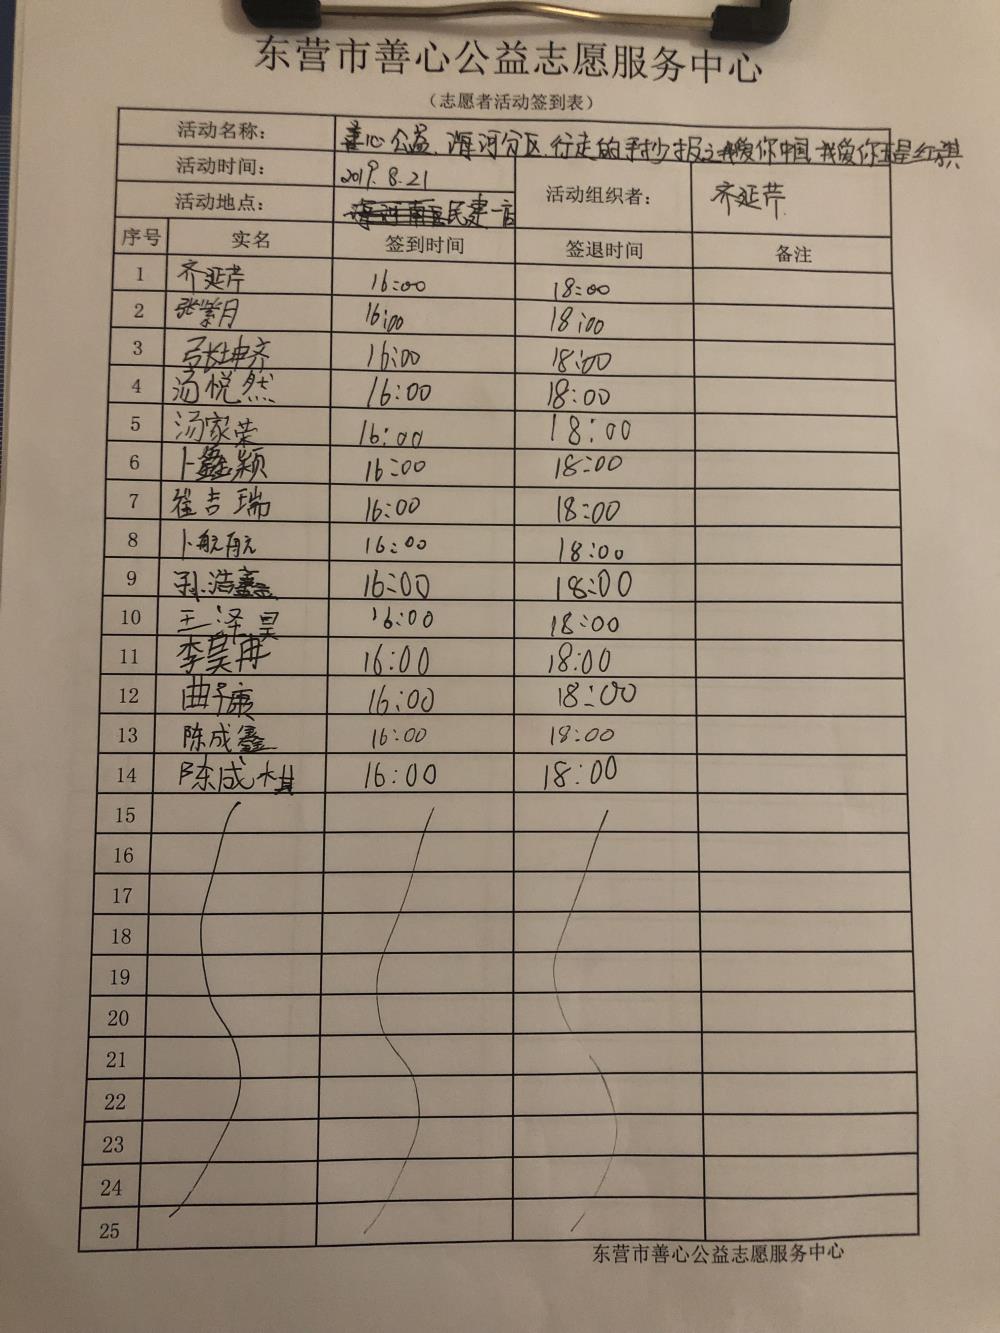 东营市善心公益志愿服务中心
（志愿者活动签到表）
活动名称： 善心公益.海河分区.行走的手抄报之我爱你中国 我爱你五星红旗
活动时间： 2019.8.21
活动组织者： 齐延芹
活动地点： 民建一店
序号 实名 签到时间 签退时间 备注
1 齐延芹 16:00 18:00
2 张紫月 16:00 18:00
3 张坤齐 16:00 18:00
4 汤悦然 16:00 18:00
5 汤家荣 16:00 18:00
6 卜鑫颖 16:00 18:00
7 崔吉瑞 16:00 18:00
8 卜航航 16:00 18:00
9 孙浩鑫 16:00 18:00
10 王泽昊 16:00 18:00
11 李昊冉 16:00 18:00
12 曲子康 16:00 18:00
13 陈成鑫 16:00 18:00
14 陈成棋 16:00 18:00
15
16
17
18
19
20
21
22
23
24
25
东营市善心公益志愿服务中心